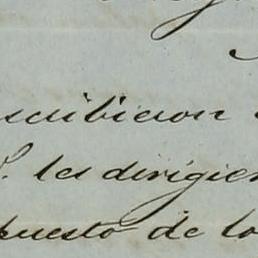 scribieron
S. les dirigier
puesto de lo